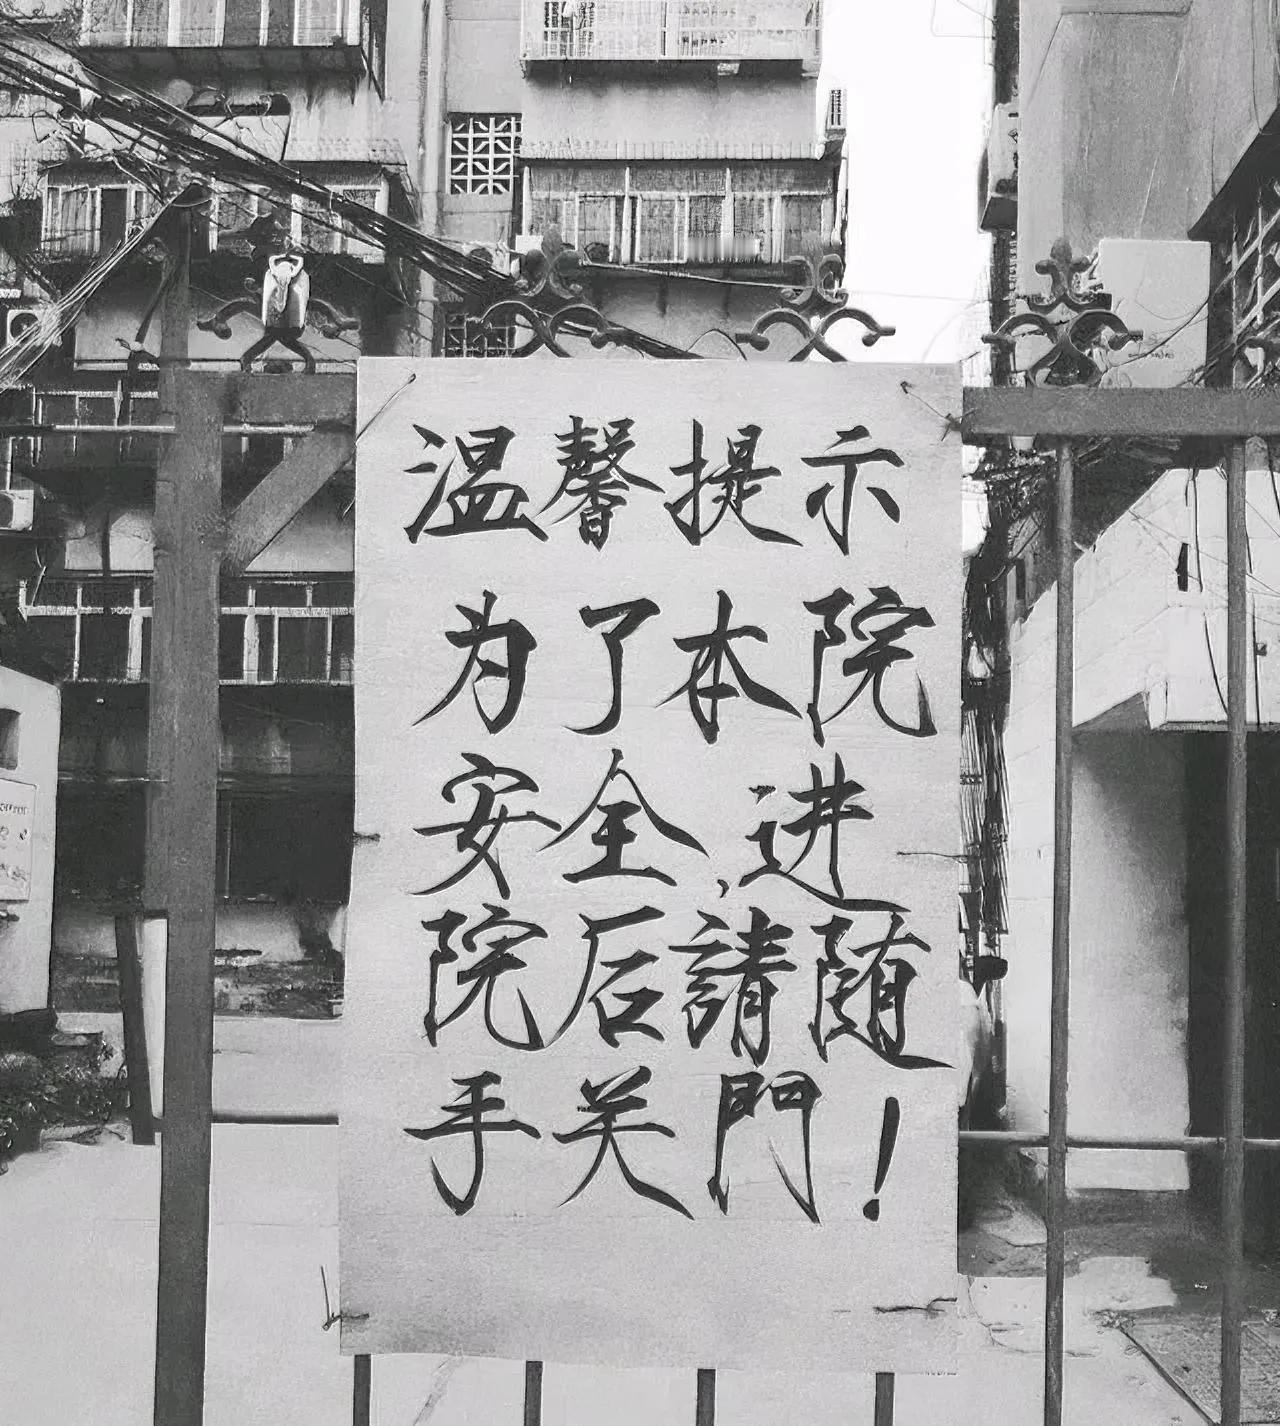 温馨提示
为了本院
安全,进
院后請随
手关門!